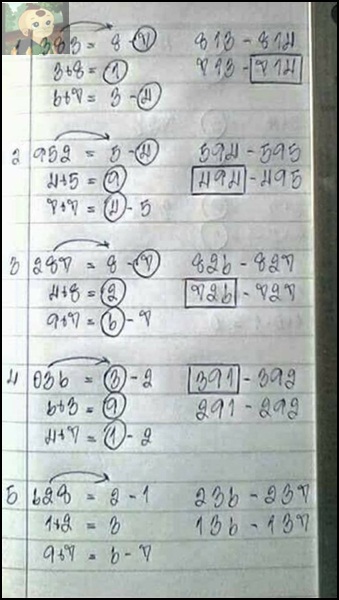 1 383 = 8 - 7 813 - 814
3+8 = 1 713 - 714
6+7 = 3 - 4
2 952 = 5 - 4 594 - 595
4+5 = 9 494 - 495
7+7 = 4 - 5
3 287 = 8 - 7 826 - 827
4+8 = 2 726 - 727
9+7 = 6 - 7
4 036 = 3 - 2 391 - 392
6+3 = 9 291 - 292
4+7 = 1 - 2
5 628 = 2 - 1 236 - 237
1+2 = 3 136 - 137
9+7 = 6 - 7